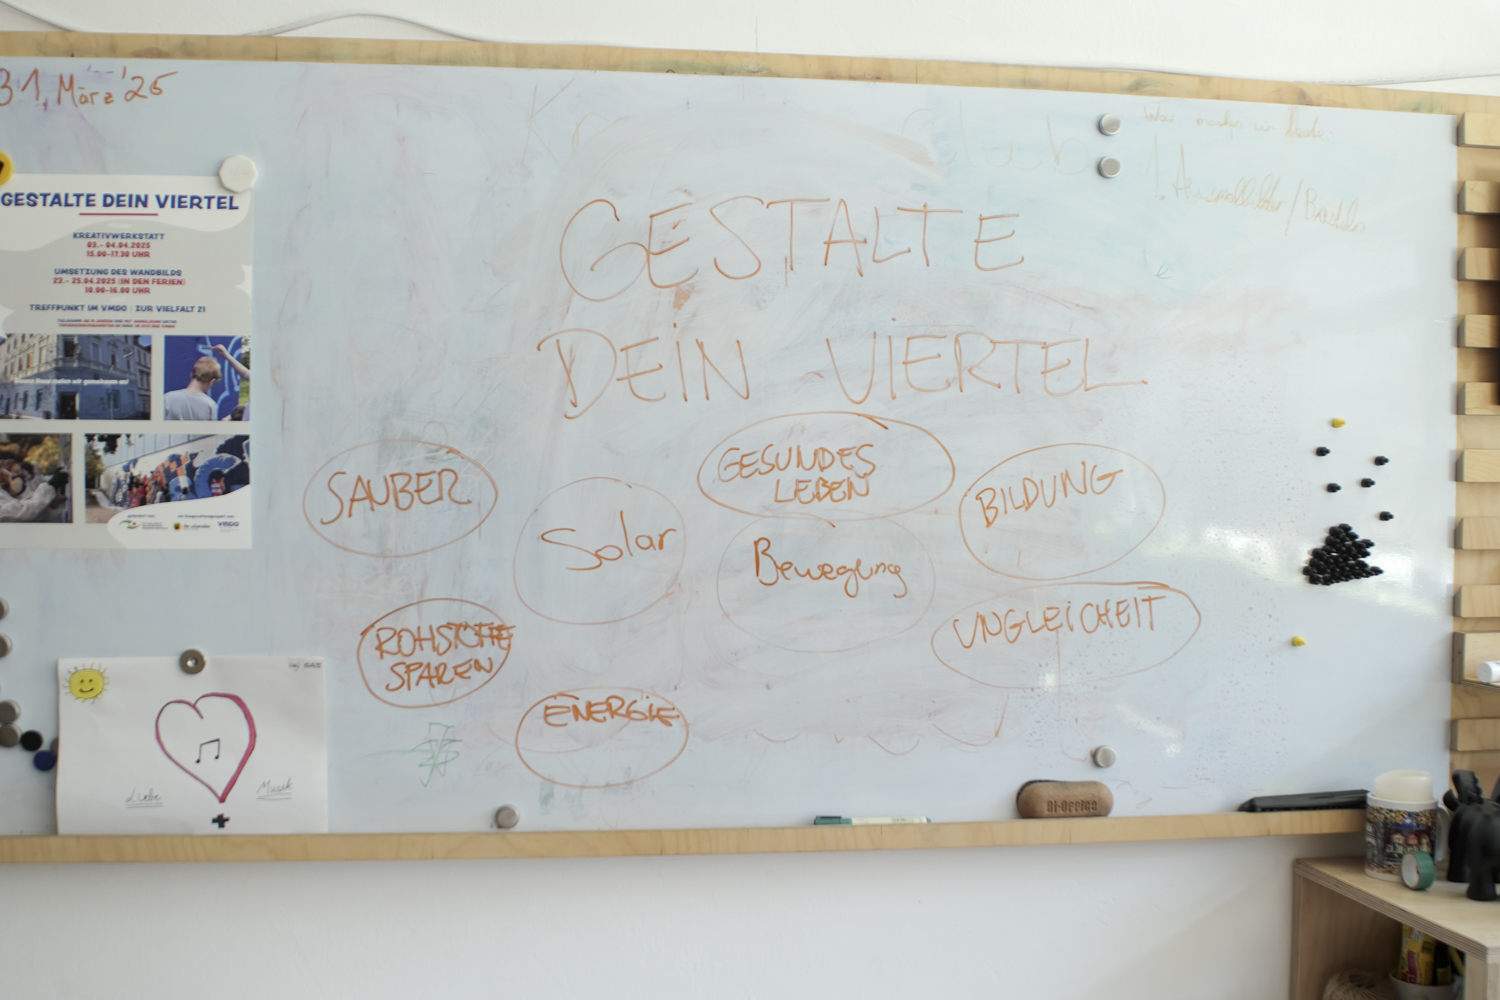 31. März '25
GESTALTE DEIN VIERTEL
KREATIVWERKSTATT
03.- 04.04.2025
15.00-17.30 UHR
UMSETZUNG DES WANDBILDS
23.- 25.04.2025 (IN DEN FERIEN)
10.00-16.00 UHR
TREFFPUNKT IM VMDO | ZUR VIELFALT 21
VMDO
GESTALTE
DEIN VIERTEL
SAUBER
Solar
GESUNDES
LEBEN
BILDUNG
Bewegung
ROHSTOFFE
SPAREN
UNGLEICHEIT
ENERGIE
Was machen wir heute:
Liebe
Musik
BI-OFFICE